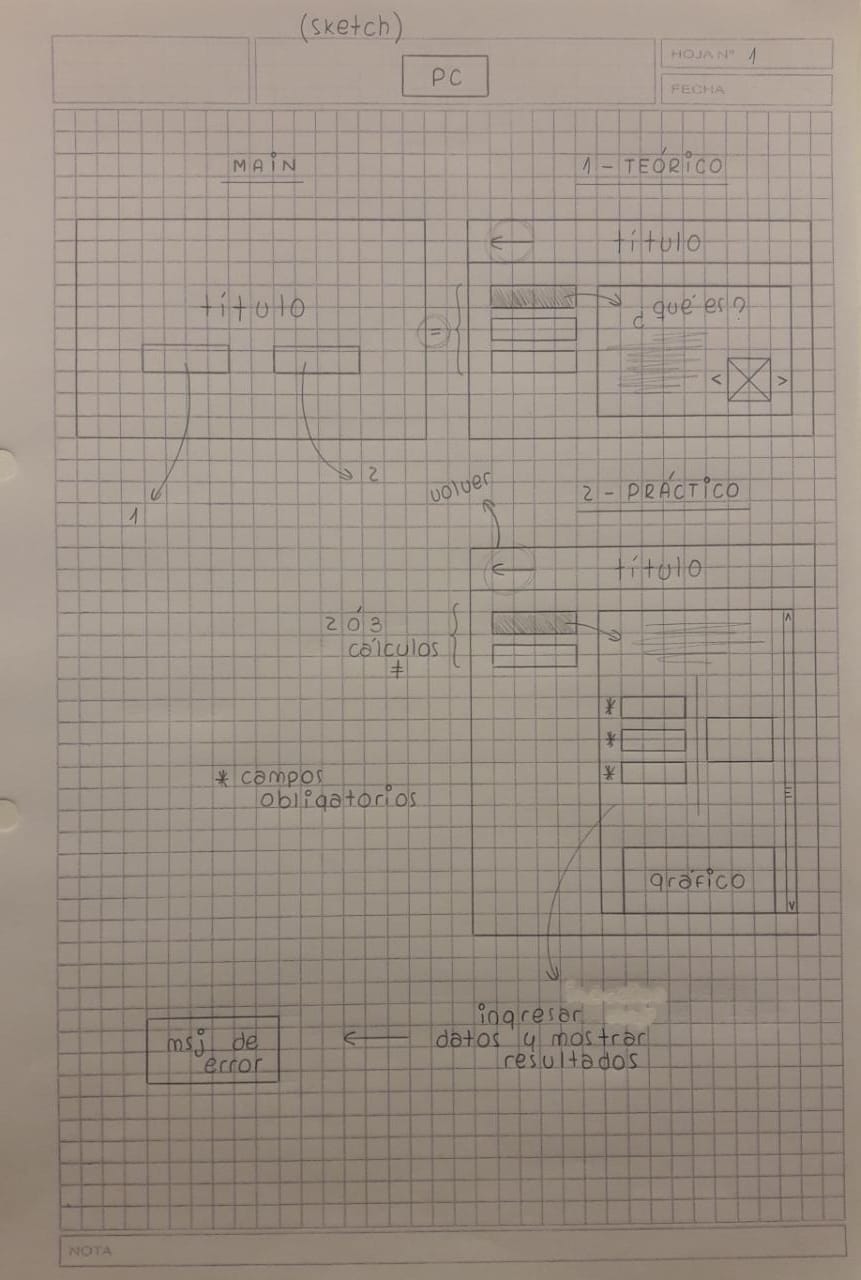 (sketch)
PC
HOJA Nº 1
FECHA
MAIN
título
1
2
1 - TEÓRICO
← título
=
¿qué es?
< >
volver
2 - PRÁCTICO
← título
2 ó 3
cálculos
≠
*
*
*
* campos
obligatorios
gráfico
ingresar
datos y mostrar
resultados
msj de
error
NOTA